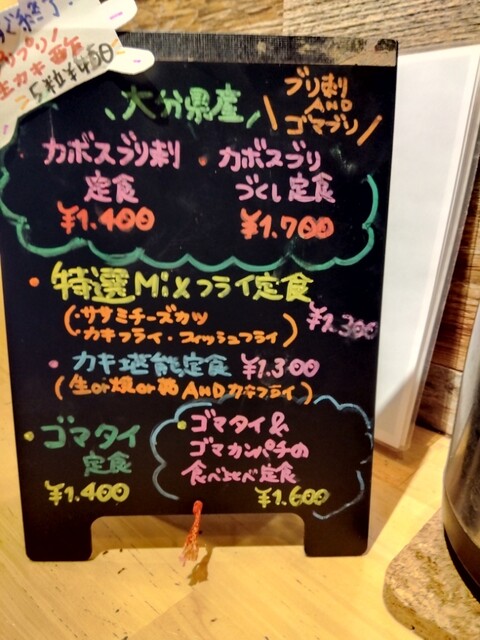 ぐ終了!
生カキ酢
5粒¥450
大分県産
ブリ刺
AND
ゴマブリ
カボスブリ刺
定食
¥1.400
カボスブリ
づくし定食
¥1.700
・特選Mixフライ定食
(・ササミチーズカツ
・カキフライ・フィッシュフライ)
¥1.300
・カキ堪能定食 ¥1.300
(生or焼or AND カキフライ)
・ゴマタイ
定食
¥1.400
・ゴマタイ&
ゴマカンパチの
食べ比べ定食
¥1.600